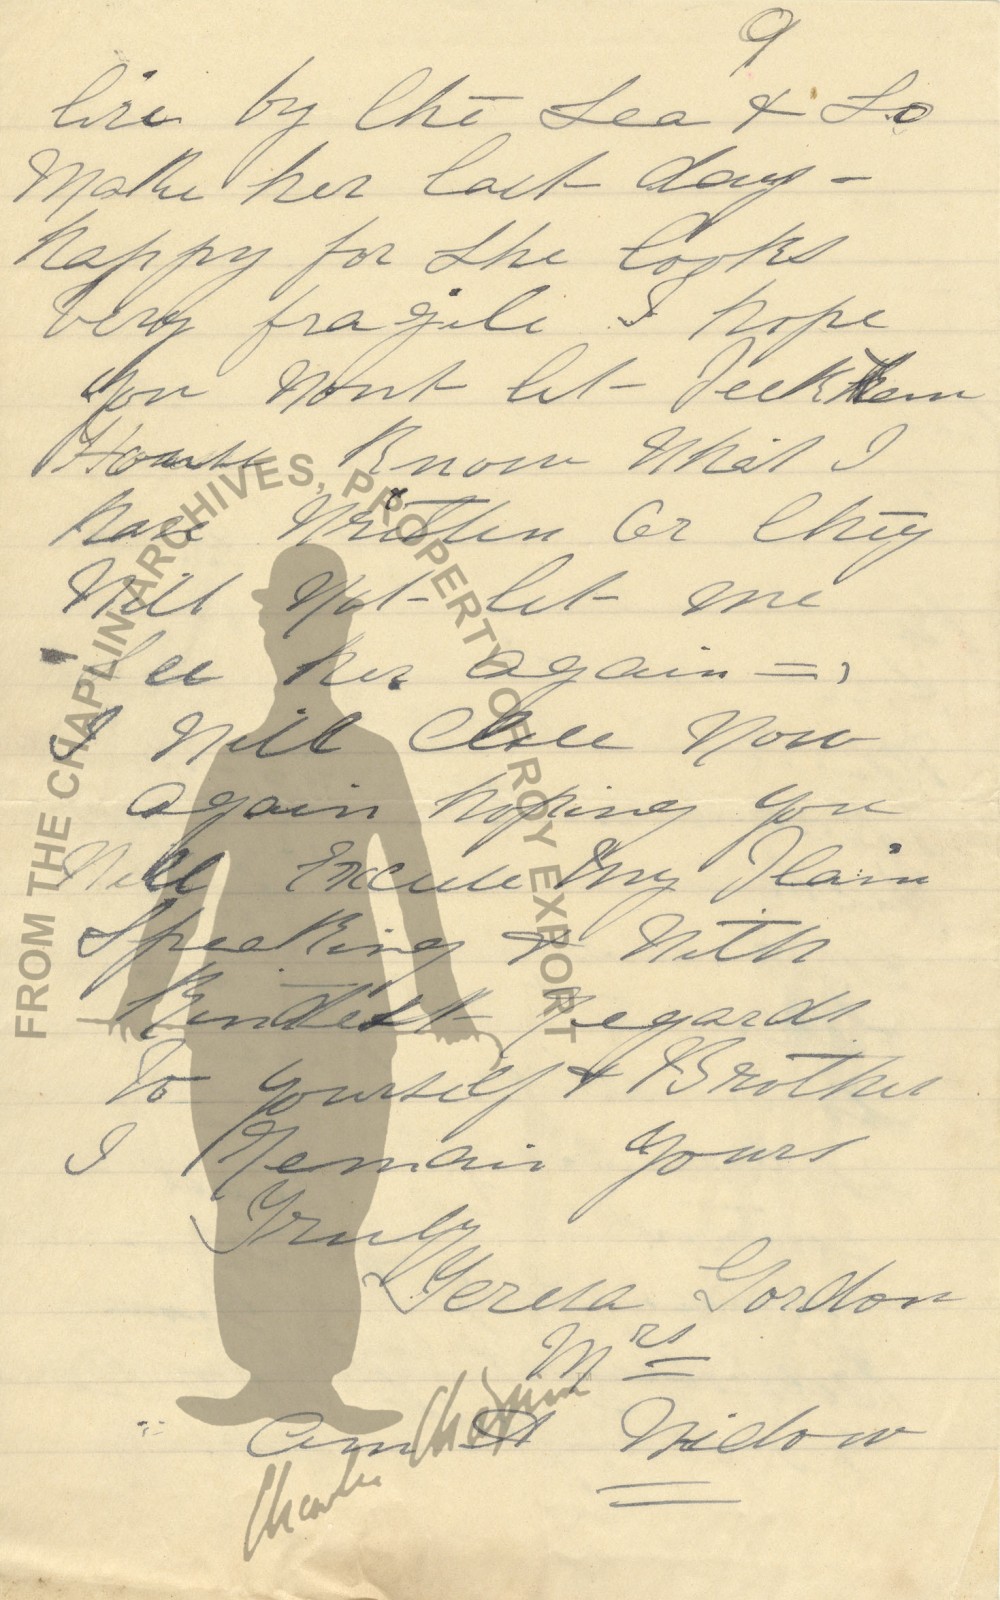 9
live by the Sea & So
Make her last day -
happy for she looks
very fragile I hope
you Wont let Peckham
House Know What I
have Written Or they
Will Not let me
See her again =
I Will Close Now
again hoping you
Will Excuse My Plain
Speaking & With
Kindest Regards
To yourself & Brother
I Remain Yours
Truly
Teresa Gordon
Mrs
am A Widow
FROM THE CHAPLIN ARCHIVES, PROPERTY OF ROY EXPORT
Charlie Chaplin